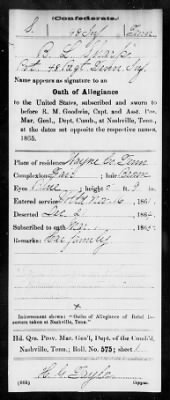 Confederate.
S. 48 Inf Tenn
B. L. Sparks
Pvt 48 Regt Tenn Inf.
Name appears as signature to an
Oath of Allegiance
to the United States, subscribed and sworn to
before R. M. Goodwin, Capt. and Asst. Pro.
Mar. Genl., Dept. Cumb., at Nashville, Tenn.,
at the dates set opposite the respective names,
1865.
Place of residence Wayne Co Tenn
Complexion Fair ; hair Brown
Eyes Blue ; height 5 ft.
Entered service Nov. 16 186
Deserted Dec 21 1864
Subscribed to oath 1865
Remarks: Has family
Indorsement shows: "Oaths of Allegiance of Rebel
taken at Nashville, Tenn."
Hd. Qrs. Prov. Mar. Gen'l, Dept. of the Cumb'd,
Nashville, Tenn.; Roll No. 575; sheet
Taylor
Copyist.